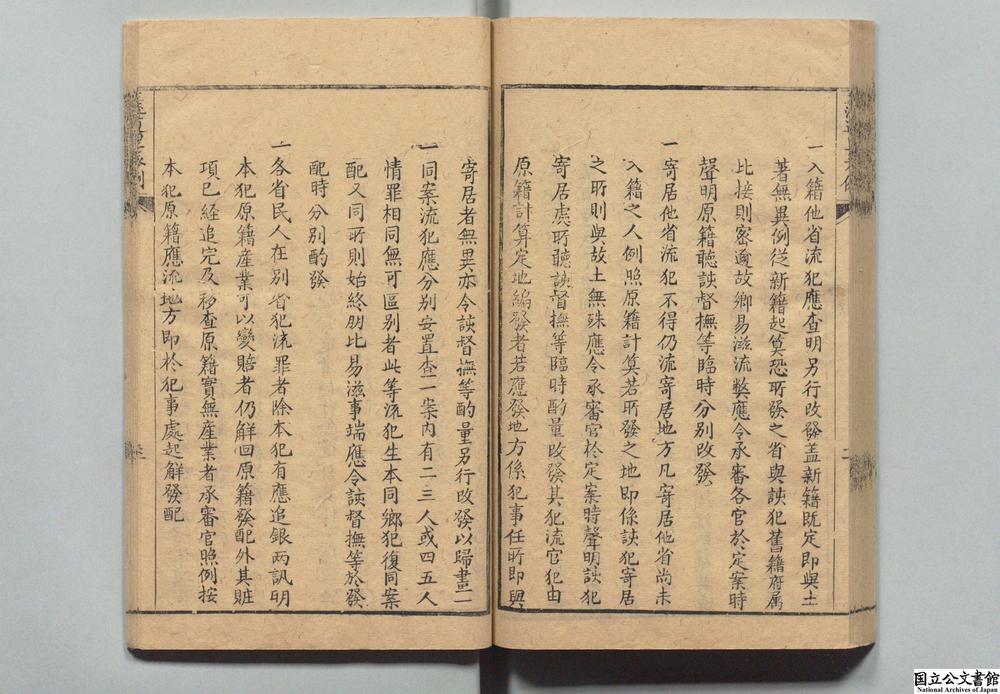 一入籍他省流犯應查明另行改發蓋新籍既定即與土
著無異例從新籍起算恐所發之省與該犯舊籍府属
比接則密邇故鄉易滋流獘應令承審各官於定案時
聲明原籍聽該督撫等臨時分別改發
一寄居他省流犯不得仍流寄居地方凡寄居他省尚未
入籍之人例照原籍計算若所發之地即係該犯寄居
之所則與故土無殊應令承審官於定案時聲明該犯
寄居處所聽該督撫等臨時酌量改發其犯流官犯由
原籍計算定地編發者若應發地方係犯事任所即與
寄居者無異亦令該督撫等酌量另行改發以歸畫一
一同案流犯應分別安置查一案內有二三人或四五人
情罪相同無可區別者此等流犯生本同鄉犯復同案
配又同所則始終朋比易滋事端應令該督撫等於發
配時分別酌發
一各省民人在別省犯流罪者除本犯有應追銀兩訊明
本犯原籍產業可以變賠者仍解回原籍發配外其賍
項已經追完及移查原籍實無產業者承審官照例按
本犯原籍應流地方即於犯事處起解發配
国立公文書館
National Archives of Japan